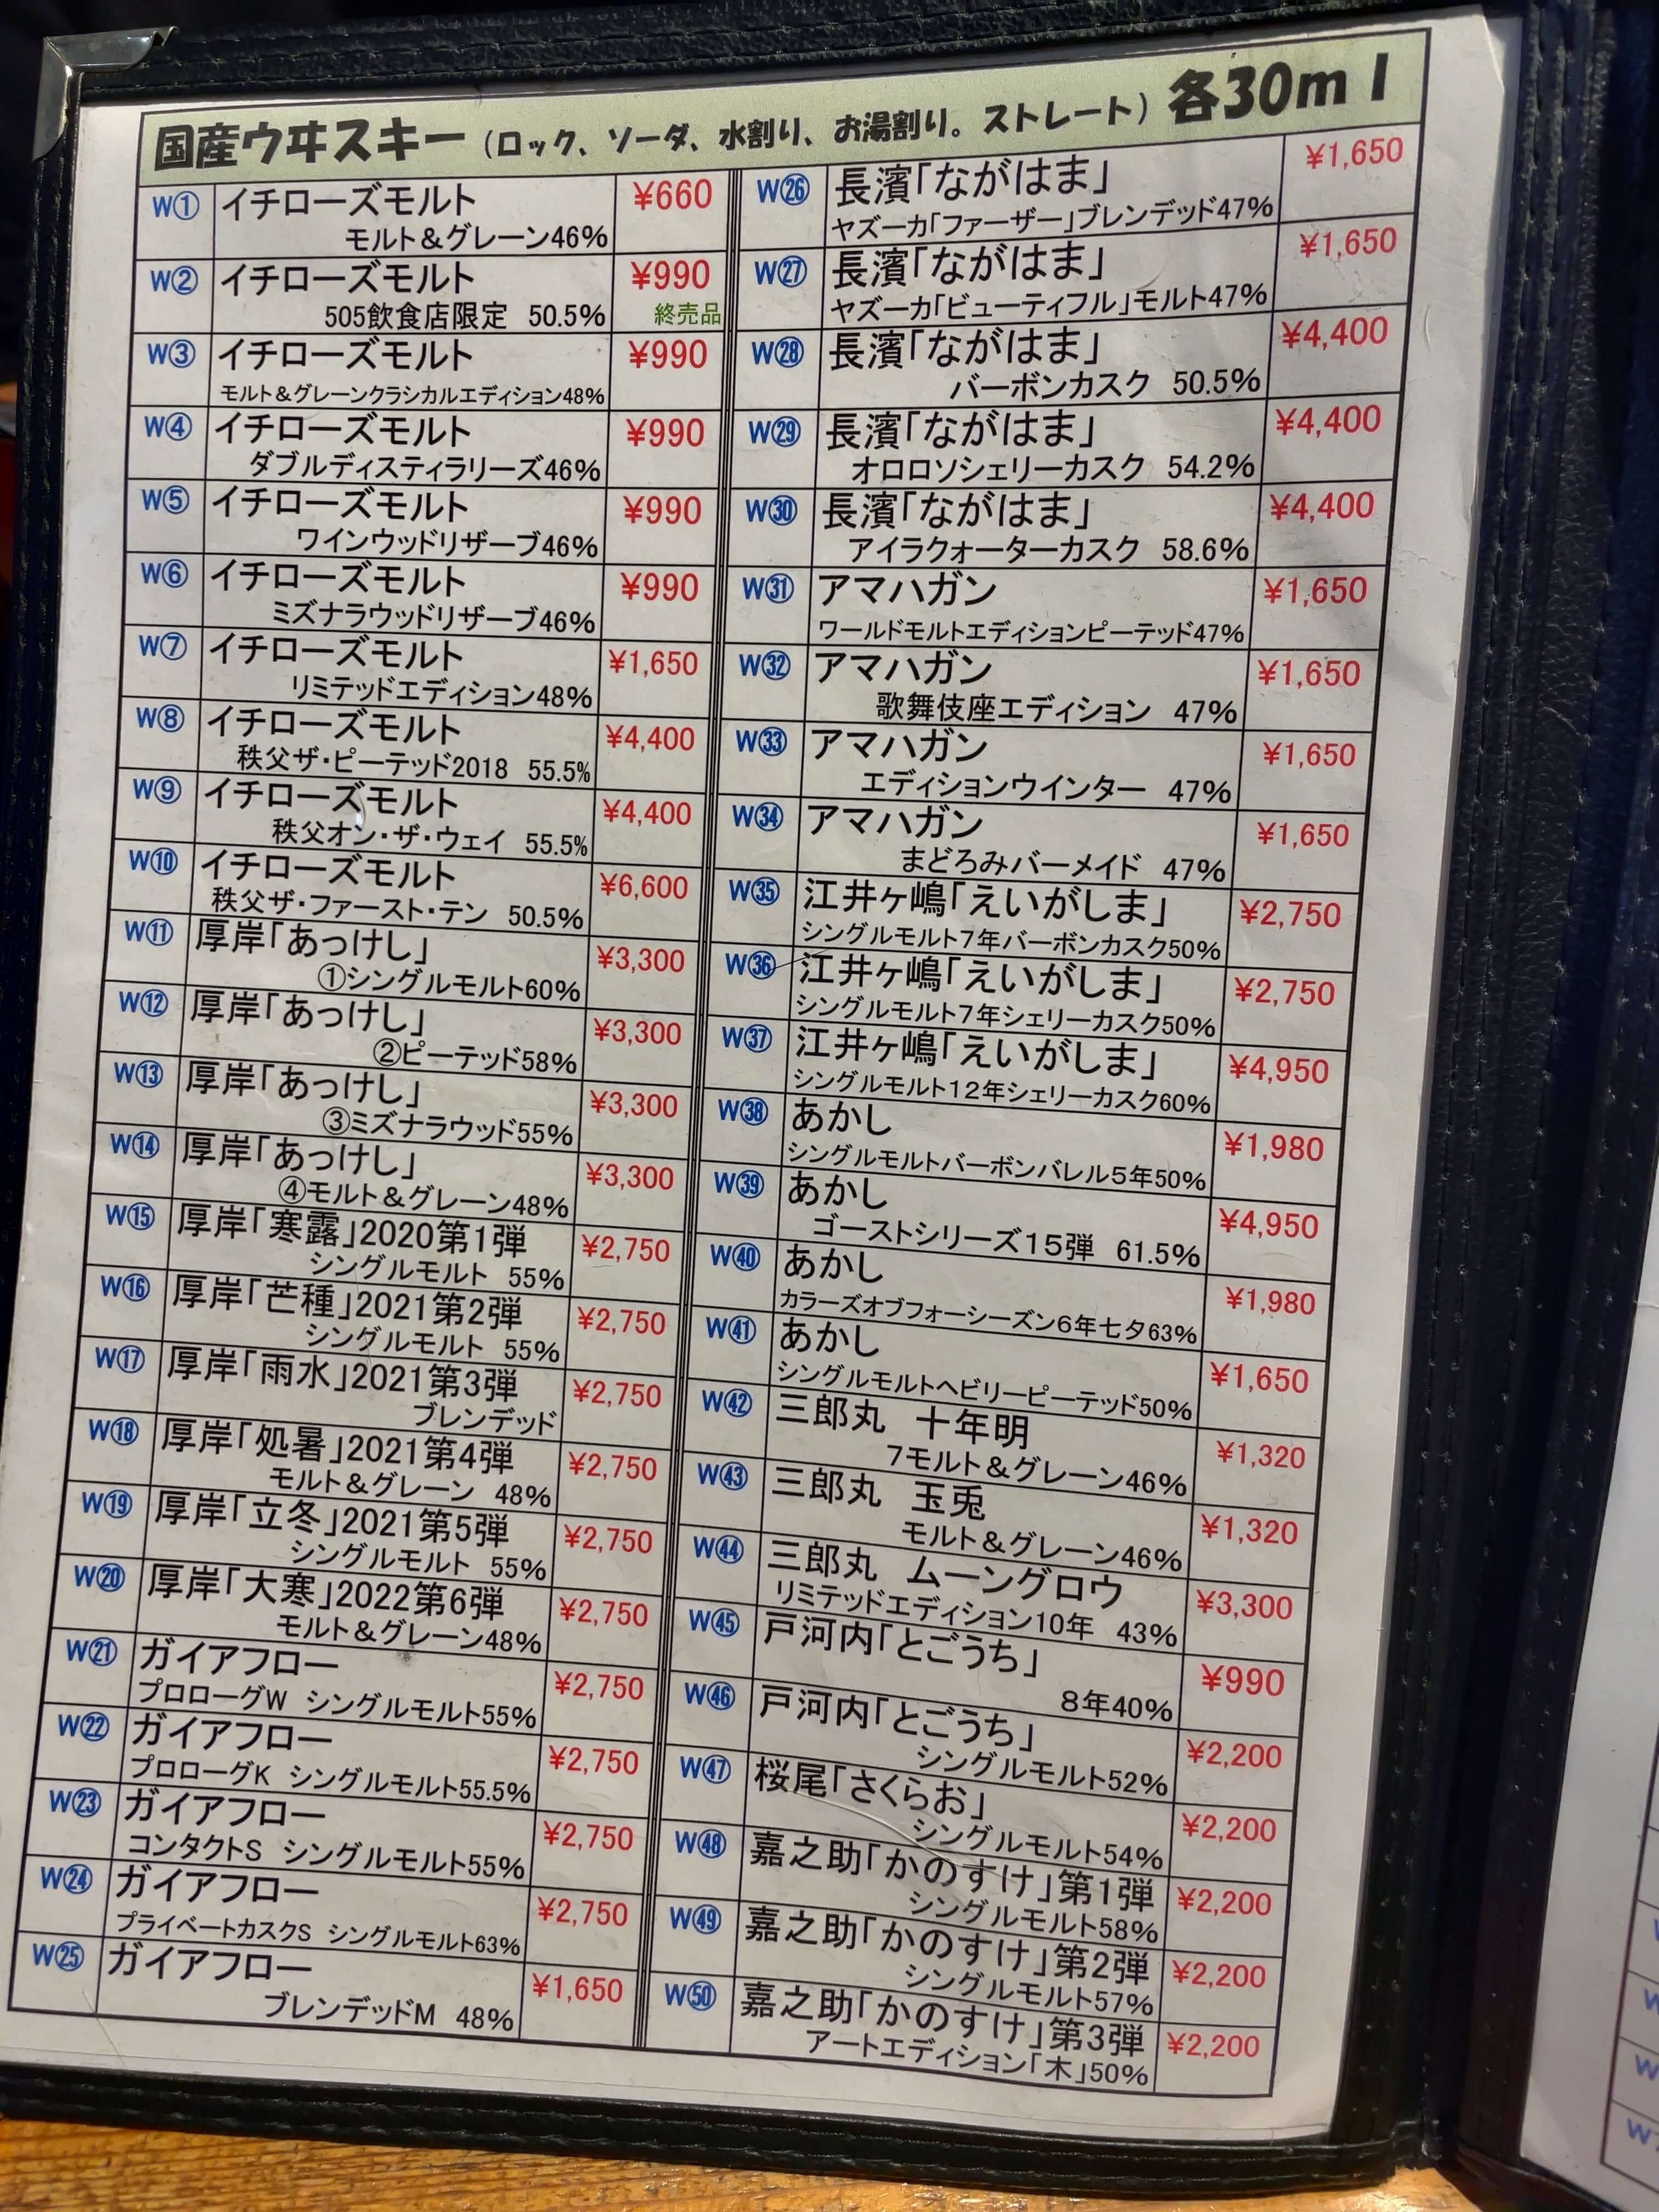 国産ウヰスキー（ロック、ソーダ、水割り、お湯割り。ストレート）各30ｍｌ
W① イチローズモルト ¥660
モルト＆グレーン46%
W② イチローズモルト ¥990
505飲食店限定 50.5% 終売品
W③ イチローズモルト ¥990
モルト＆グレーンクラシカルエディション48%
W④ イチローズモルト ¥990
ダブルディスティラリーズ46%
W⑤ イチローズモルト ¥990
ワインウッドリザーブ46%
W⑥ イチローズモルト ¥990
ミズナラウッドリザーブ46%
W⑦ イチローズモルト ¥1,650
リミテッドエディション48%
W⑧ イチローズモルト ¥4,400
秩父ザ・ピーテッド2018 55.5%
W⑨ イチローズモルト ¥4,400
秩父オン・ザ・ウェイ 55.5%
W⑩ イチローズモルト ¥6,600
秩父ザ・ファースト・テン 50.5%
W⑪ 厚岸「あっけし」 ¥3,300
①シングルモルト60%
W⑫ 厚岸「あっけし」 ¥3,300
②ピーテッド58%
W⑬ 厚岸「あっけし」 ¥3,300
③ミズナラウッド55%
W⑭ 厚岸「あっけし」 ¥3,300
④モルト＆グレーン48%
W⑮ 厚岸「寒露」2020第1弾 ¥2,750
シングルモルト 55%
W⑯ 厚岸「芒種」2021第2弾 ¥2,750
シングルモルト 55%
W⑰ 厚岸「雨水」2021第3弾 ¥2,750
ブレンデッド
W⑱ 厚岸「処暑」2021第4弾 ¥2,750
モルト＆グレーン 48%
W⑲ 厚岸「立冬」2021第5弾 ¥2,750
シングルモルト 55%
W⑳ 厚岸「大寒」2022第6弾 ¥2,750
モルト＆グレーン48%
W㉑ ガイアフロー ¥2,750
プロローグW シングルモルト55%
W㉒ ガイアフロー ¥2,750
プロローグK シングルモルト55.5%
W㉓ ガイアフロー ¥2,750
コンタクトS シングルモルト55%
W㉔ ガイアフロー ¥2,750
プライベートカスクS シングルモルト63%
W㉕ ガイアフロー ¥1,650
ブレンデッドM 48%
W㉖ 長濱「ながはま」 ¥1,650
ヤズーカ「ファーザー」ブレンデッド47%
W㉗ 長濱「ながはま」 ¥1,650
ヤズーカ「ビューティフル」モルト47%
W㉘ 長濱「ながはま」 ¥4,400
バーボンカスク 50.5%
W㉙ 長濱「ながはま」 ¥4,400
オロロソシェリーカスク 54.2%
W㉚ 長濱「ながはま」 ¥4,400
アイラクォーターカスク 58.6%
W㉛ アマハガン ¥1,650
ワールドモルトエディションピーテッド47%
W㉜ アマハガン ¥1,650
歌舞伎座エディション 47%
W㉝ アマハガン ¥1,650
エディションウインター 47%
W㉞ アマハガン ¥1,650
まどろみバーメイド 47%
W㉟ 江井ヶ嶋「えいがしま」 ¥2,750
シングルモルト７年バーボンカスク50%
W㊱ 江井ヶ嶋「えいがしま」 ¥2,750
シングルモルト７年シェリーカスク50%
W㊲ 江井ヶ嶋「えいがしま」 ¥4,950
シングルモルト１２年シェリーカスク60%
W㊳ あかし ¥1,980
シングルモルトバーボンバレル５年50%
W㊴ あかし ¥4,950
ゴーストシリーズ１５弾 61.5%
W㊵ あかし ¥1,980
カラーズオブフォーシーズン６年七夕63%
W㊶ あかし ¥1,650
シングルモルトヘビリーピーテッド50%
W㊷ 三郎丸 十年明 ¥1,320
７モルト＆グレーン46%
W㊸ 三郎丸 玉兎 ¥1,320
モルト＆グレーン46%
W㊹ 三郎丸 ムーングロウ ¥3,300
リミテッドエディション10年 43%
W㊺ 戸河内「とごうち」 ¥990
８年40%
W㊻ 戸河内「とごうち」 ¥2,200
シングルモルト52%
W㊼ 桜尾「さくらお」 ¥2,200
シングルモルト54%
W㊽ 嘉之助「かのすけ」第1弾 ¥2,200
シングルモルト58%
W㊾ 嘉之助「かのすけ」第2弾 ¥2,200
シングルモルト57%
W㊿ 嘉之助「かのすけ」第3弾 ¥2,200
アートエディション「木」50%